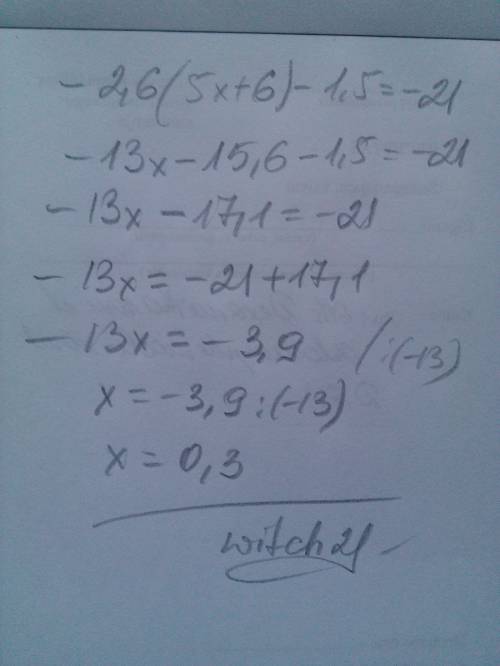 - 2,6(5x+6)-1,5=-21
-13x-15,6-1,5=-21
-13x-17,1=-21
-13x=-21+17,1
-13x=-3,9 /:(-13)
x=-3,9:(-13)
x=0,3
witch21